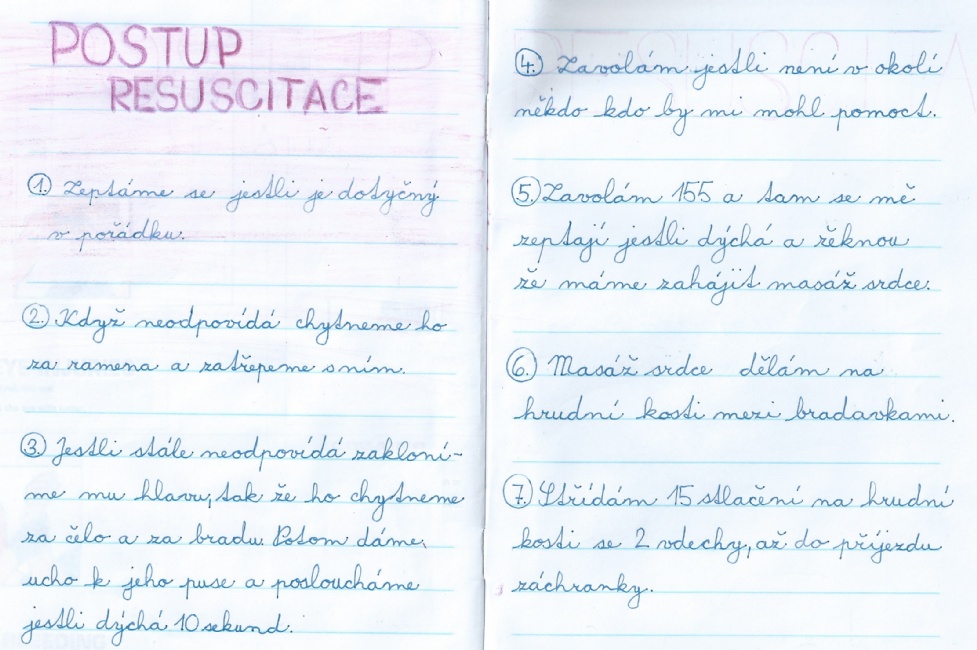 POSTUP
RESUSCITACE
1. Zeptáme se jestli je dotyčný
v pořádku.
2. Když neodpovídá chytneme ho
za ramena a zatřepeme s ním.
3. Jestli stále neodpovídá zakloní-
me mu hlavu, tak že ho chytneme
za čelo a za bradu. Potom dáme,
ucho k jeho puse a posloucháme
jestli dýchá 10 sekund.
4. Zavolám jestli není v okolí
někdo kdo by mi mohl pomoct.
5. Zavolám 155 a tam se mě
zeptají jestli dýchá a řeknou
že máme zahájit masáž srdce.
6. Masáž srdce dělám na
hrudní kosti mezi bradavkami.
7. Střídám 15 stlačení na hrudní
kosti se 2 vdechy, až do příjezdu
záchranky.